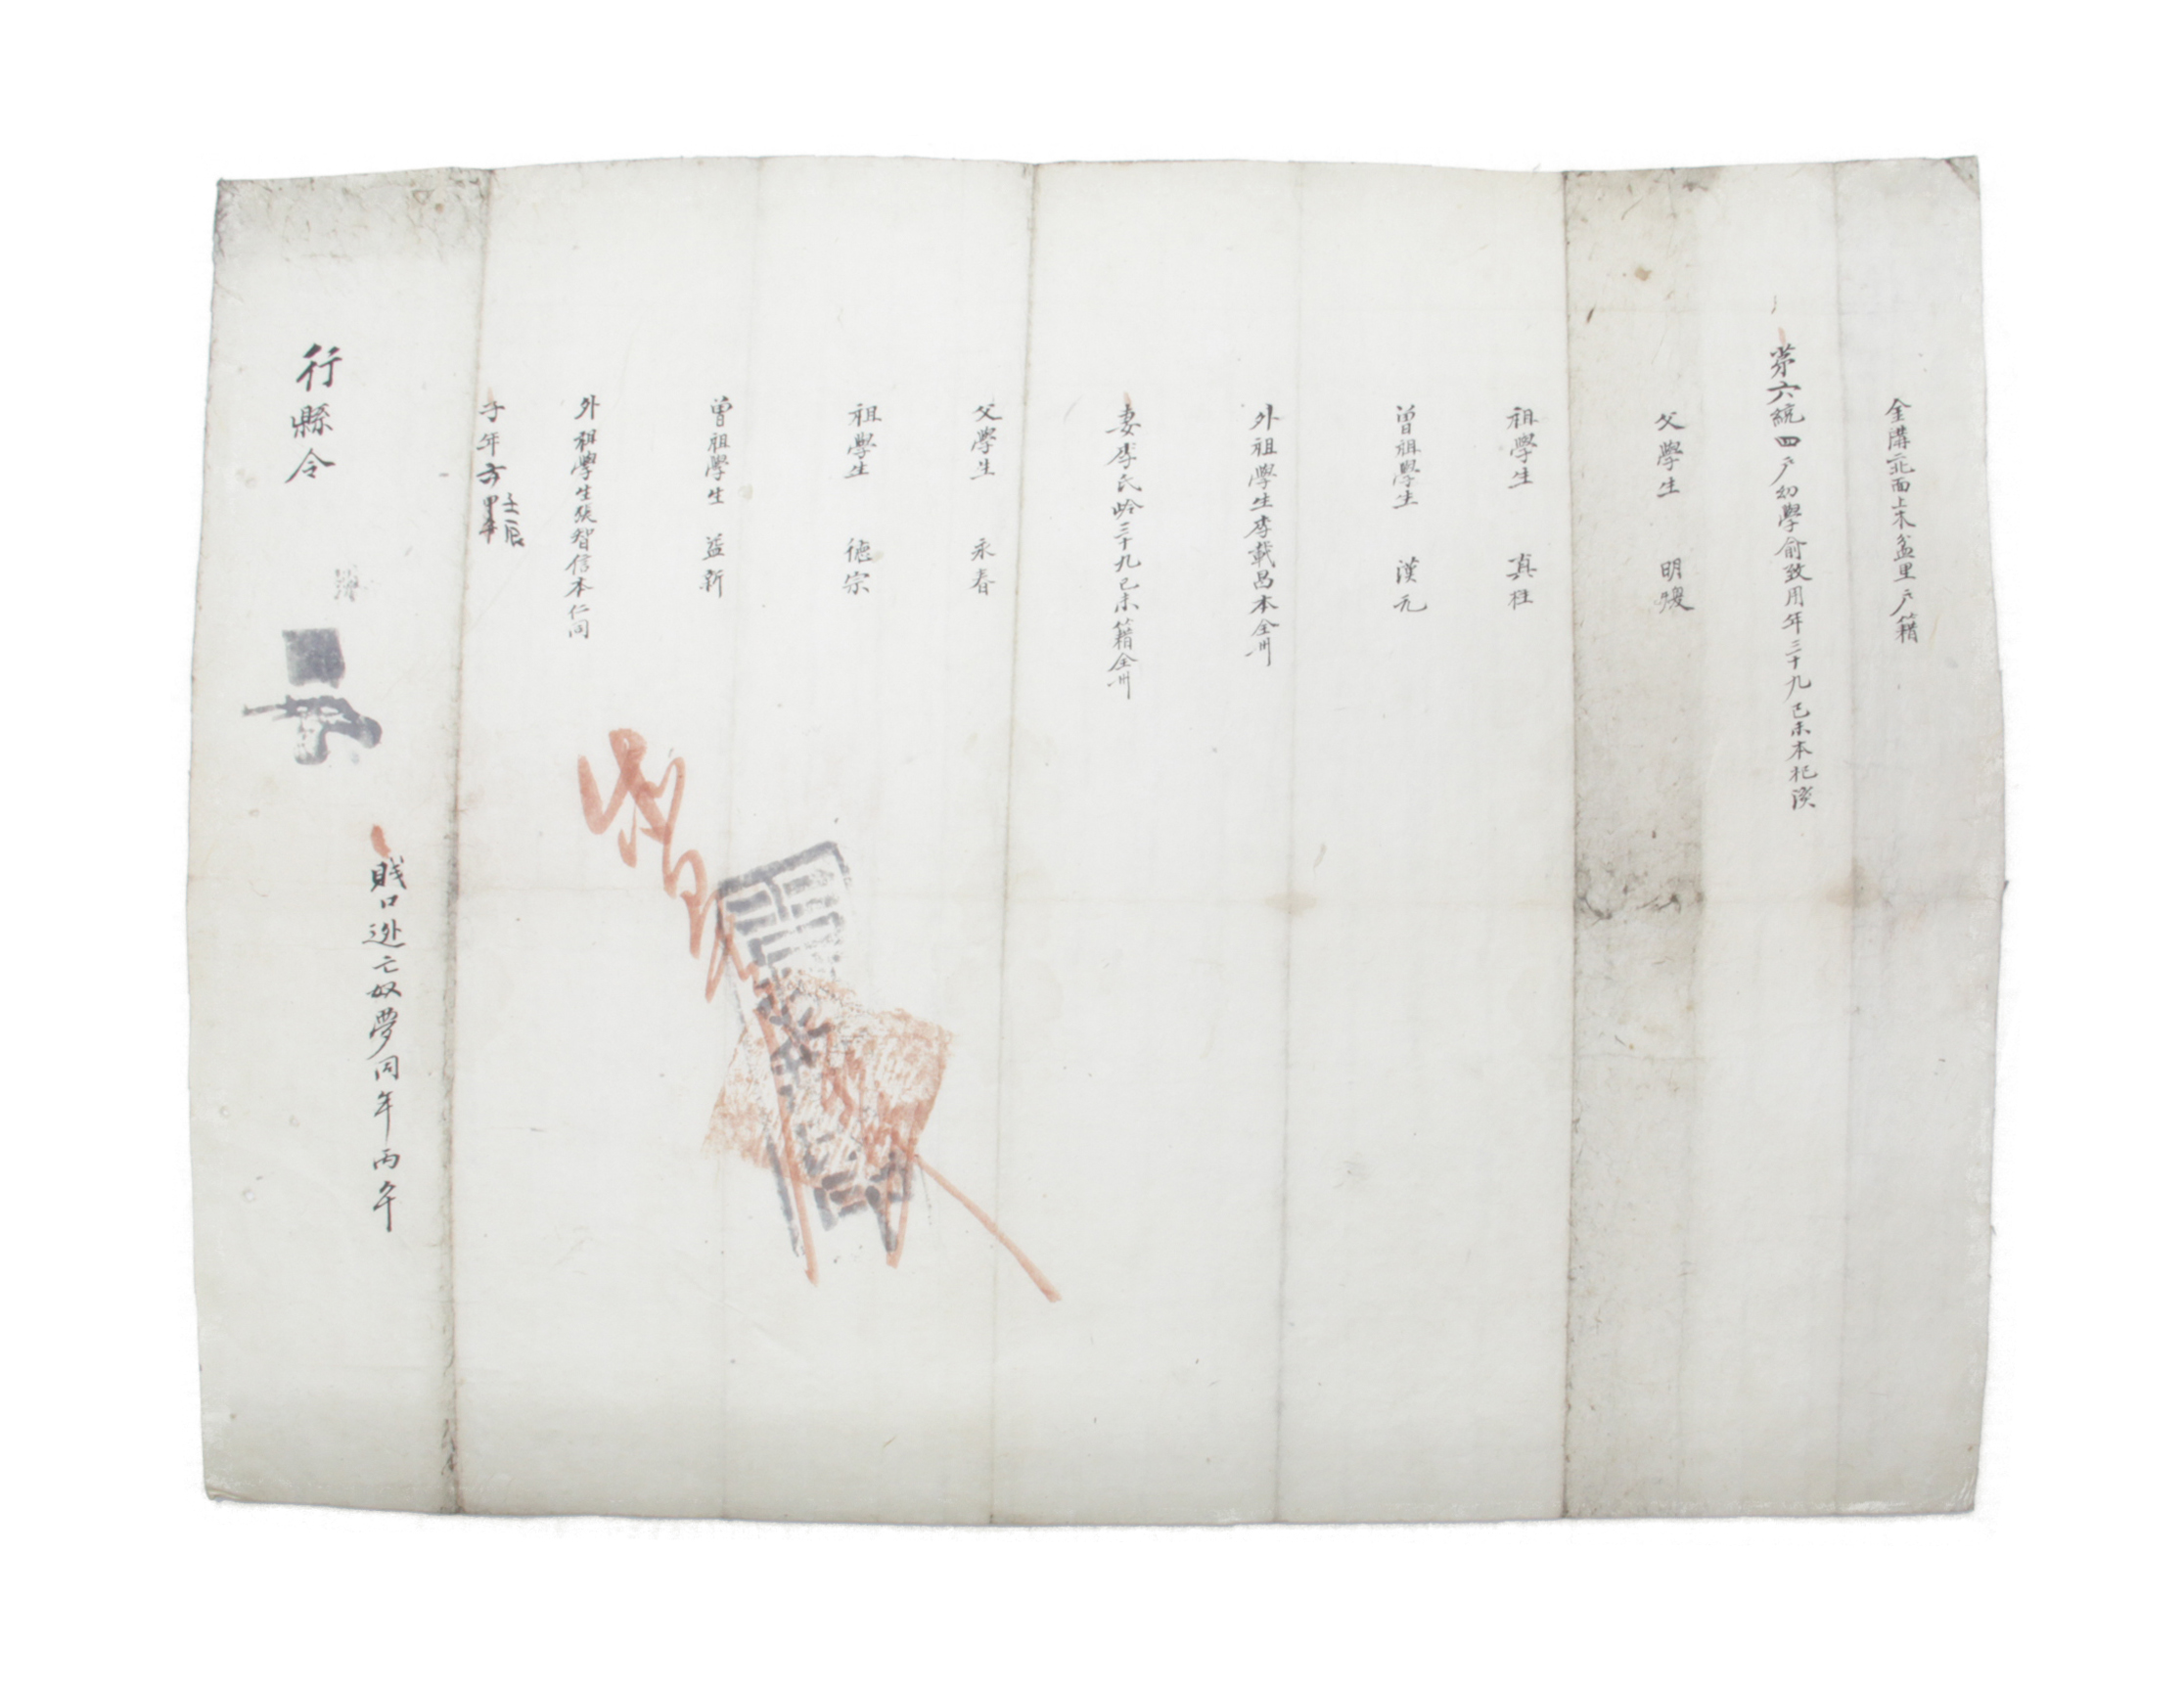 金溝二北面上木盆里戶籍
第六統四戶幼學俞致用年三十九己未本杞溪
父學生 明煖
祖學生 真柱
曾祖學生 漢元
外祖學生李載昌本全州
妻李氏齡三十九己未籍全州
父學生 永春
祖學生 德宗
曾祖學生 益新
外祖學生張智信本仁同
子年
壬辰
賤口逃亡奴夢同年丙午
行縣令